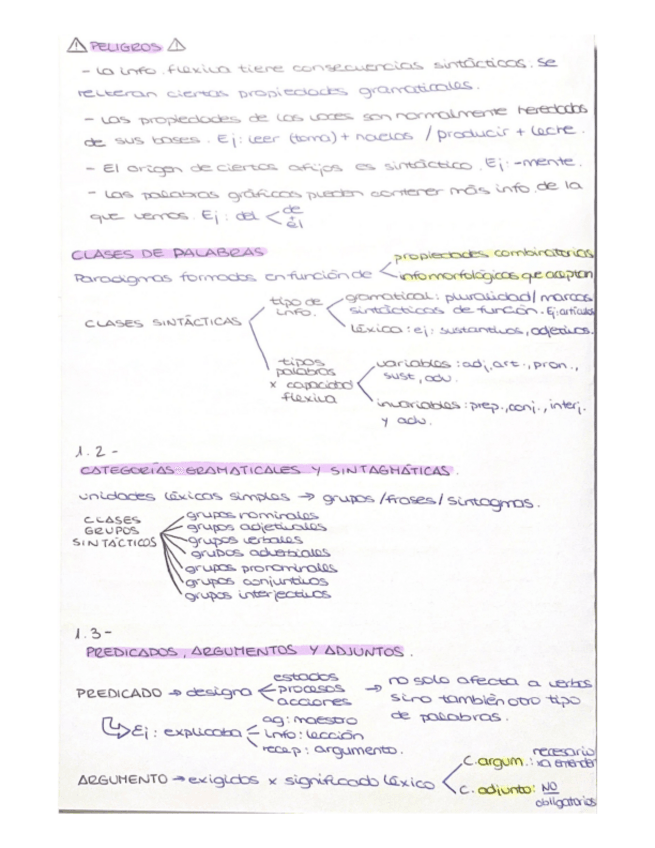 ⚠ PELIGROS ⚠
- La info. flexiva tiene consecuencias sintácticas. Se
reiteran ciertas propiedades gramaticales.
- Las propiedades de las voces son normalmente heredadas
de sus bases. Ej: leer (toma) + novelas / producir + leche.
- El origen de ciertos afijos es sintáctico. Ej: -mente.
- Las palabras gráficas pueden contener más info. de la
que vemos. Ej: del < de
él
CLASES DE PALABRAS
Paradigmas formados en función de < propiedades combinatorias
info morfológicas que aceptan
CLASES SINTÁCTICAS
tipo de info.
gramatical: pluralidad/marcas
sintácticas de función. Ej: artículos
Léxica: ej: sustantivos, adjetivos.
tipos
palabras
x capacidad
flexiva
variables: adj, art., pron.,
sust, adv.
invariables: prep., conj., interj.
y adv.
1.2-
CATEGORÍAS GRAMATICALES Y SINTAGMÁTICAS.
unidades léxicas simples → grupos/frases/sintagmas.
CLASES
GRUPOS
SINTÁCTICOS
grupos nominales
grupos adjetivales
grupos verbales
grupos adverbiales
grupos pronominales
grupos conjuntivos
grupos interjectivos
1.3-
PREDICADOS, ARGUMENTOS Y ADJUNTOS.
PREDICADO → designa
estados
procesos
acciones
→ no solo afecta a verbos
sino también otro tipo
de palabras.
Ej: explicaba
ag: maestro
info: lección
recep: argumento.
ARGUMENTO → exigidos x significado léxico
C. argum.: necesario
C. adjunto: NO
obligatorios